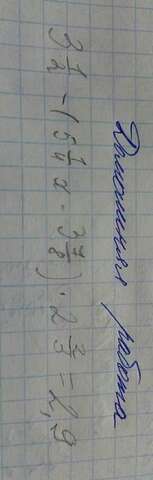 Домашняя работа
3 1/2 - (5 1/4 x - 3 7/8) · 2 2/3 = 2,9